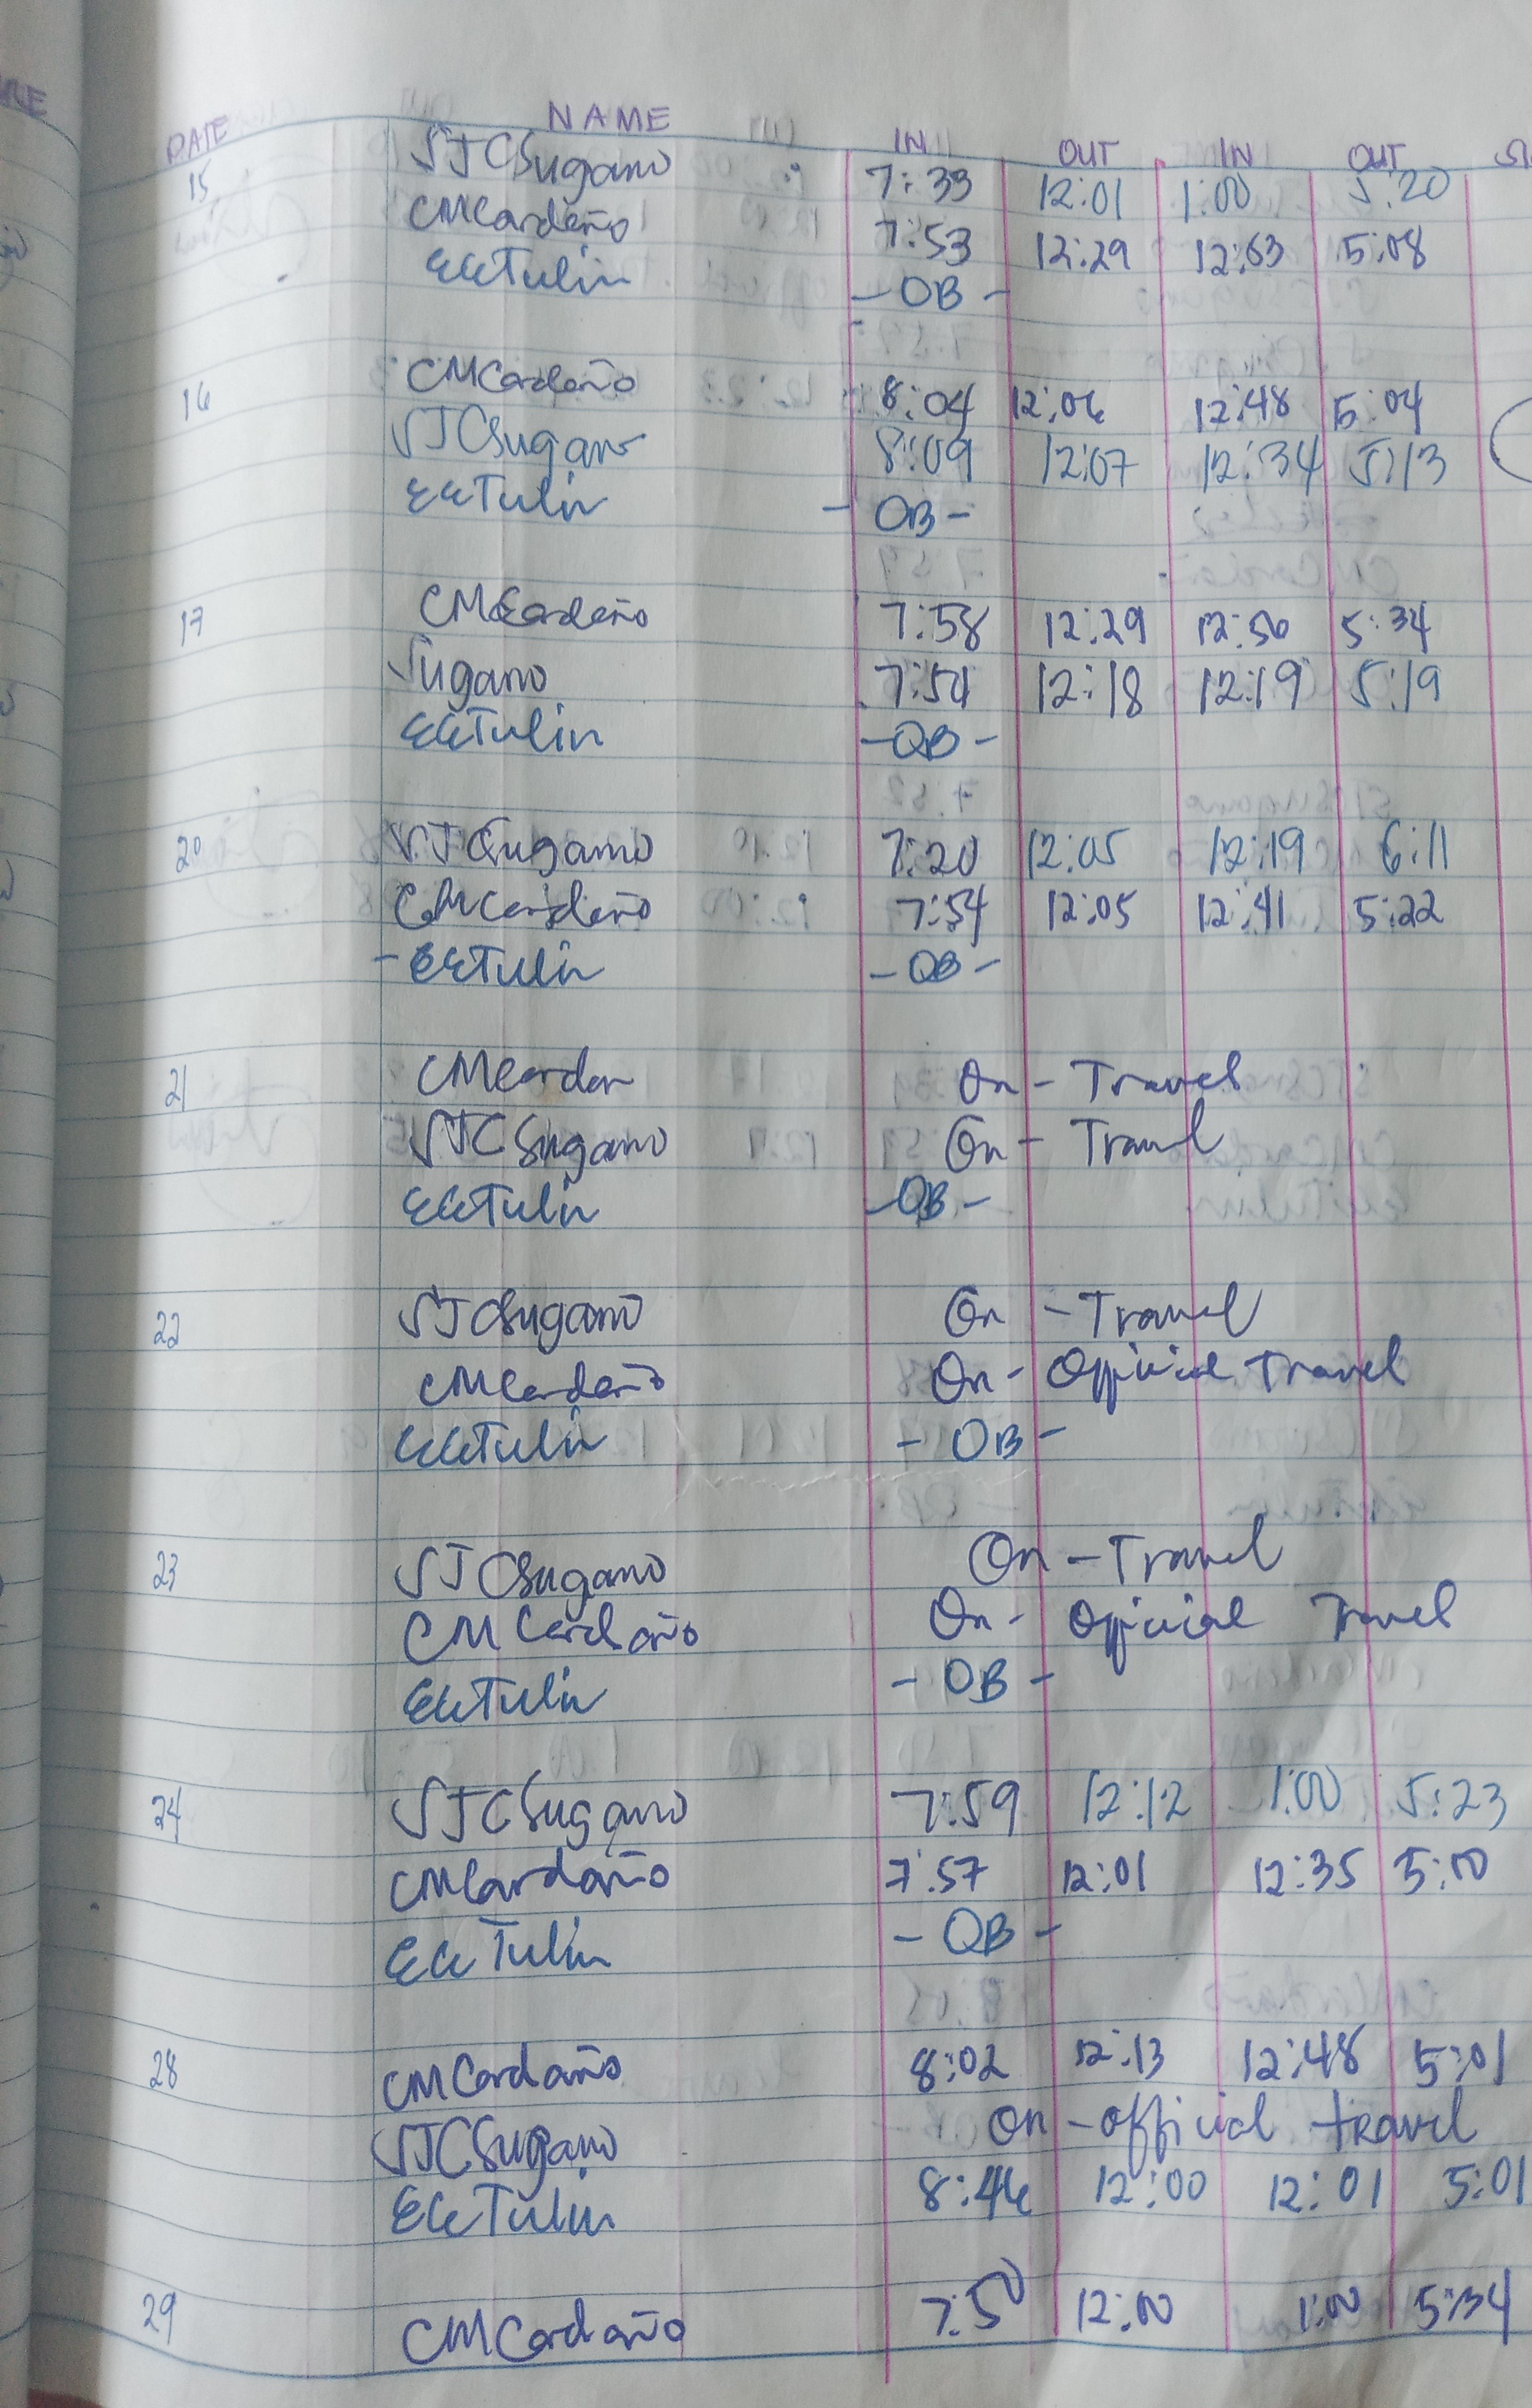 DATE NAME IN OUT IN OUT
15 SJCSugano 7:33 12:01 1:00 5:20
CMCardeño 7:53 12:29 12:53 5:08
EGTulin - OB -
16 CMCardeño 8:04 12:06 12:48 5:04
SJCSugano 8:09 12:07 12:34 5:13
EGTulin - OB -
17 CMCardeño 7:58 12:29 12:56 5:34
Sugano 7:54 12:18 12:19 5:19
EGTulin - OB -
20 SJCSugano 7:20 12:05 12:19 6:11
CMCardeño 7:54 12:05 12:41 5:22
- EGTulin - OB -
21 CMCardeño On - Travel
SJCSugano On - Travel
EGTulin - OB -
22 SJCSugano On - Travel
CMCardeño On - Official Travel
EGTulin - OB -
23 SJCSugano On - Travel
CMCardeño On - Official Travel
EGTulin - OB -
24 SJCSugano 7:59 12:12 1:00 5:23
CMCardeño 7:57 12:01 12:35 5:00
EGTulin - OB -
28 CMCardeño 8:02 12:13 12:48 5:01
SJCSugano On - official travel
EGTulin 8:46 12:00 12:01 5:01
29 CMCardeño 7:50 12:00 1:00 5:34